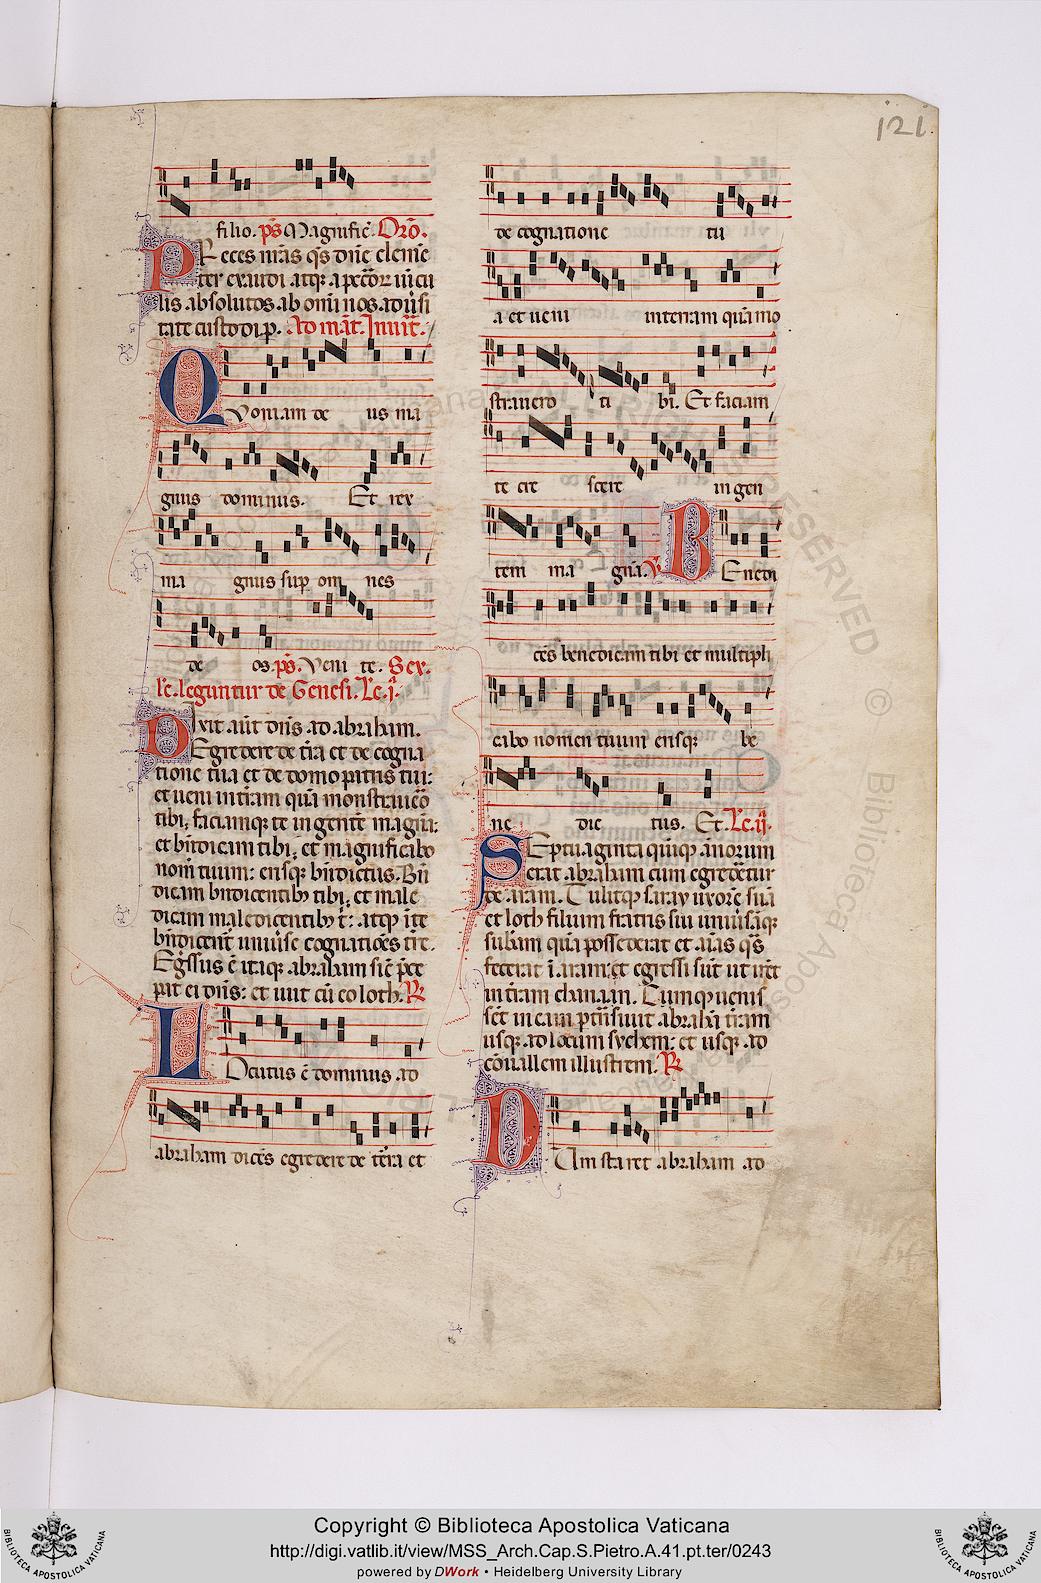 121.
filio. p̄s Magnific̄. Orō.
Preces nr̄as q̄s dn̄e clemē
ter exaudi atq; a pcc̄oꝝ uīcu
lis absolutos ab omī nos adūsi
tate custodi. p. Ad māt. Inuit̄.
Quoniam de us ma
gnus dominus. Et rex
ma gnus sup om nes
de os. p̄s. Veni te. Sex.
lc̄. leguntur de Genesi. Lc̄. j.
Dixit aūt dn̄s ad abraham.
Egredere de t̄ra et de cogna
tione tua et de domo pat̄ris tui:
et ueni in t̄ram quā monstrauēo
tibi; faciamq; te in gentē magnā:
et bn̄dicam tibi. et magnificabo
nom̄ tuum: erisq; bn̄dictus. Bn̄
dicam bn̄dicentibꝫ tibi. et male
dicam maledicentibꝫ t̄: atqꝫ ī te
bn̄dicent̄ uniūse cognatiōes t̄re.
Eḡssus ē itaq; abraham sic̄ p̄ce
pit ei dn̄s: et iuit cū eo loth. R̄
Locutus ē dominus ad
abraham dicēs egredere de t̄ra et
de cognatione tu
a et ueni in terram quā mo
straucro ti bi. Et faciam
te cre scere in gen
tem ma gnā. V̄ Benedi
cēs benedicam tibi et multipli
cabo nomen tuum erisq; be
ne dic tus. Et. Lc̄. ij.
Septuaginta quīqꝫ anorum
erat abraham cum egredēetur
de aram. Tulitqꝫ saray uxorē suā
et loth filium fratris sui uniūsāq;
sub̄am quā possederat et aīas q̄s
fecerat ī aram; et egressi sūt ut irēt
in t̄ram chanaan. Cumqꝫ uenis
sēt in eam p̄tn̄siuit abrahā t̄ram
usq; ad locum sychem: et usq; ad
cōuallem illustrem. R̄
Dum staret abraham ad
Copyright © Biblioteca Apostolica Vaticana
http://digi.vatlib.it/view/MSS_Arch.Cap.S.Pietro.A.41.pt.ter/0243
powered by DWork • Heidelberg University Library